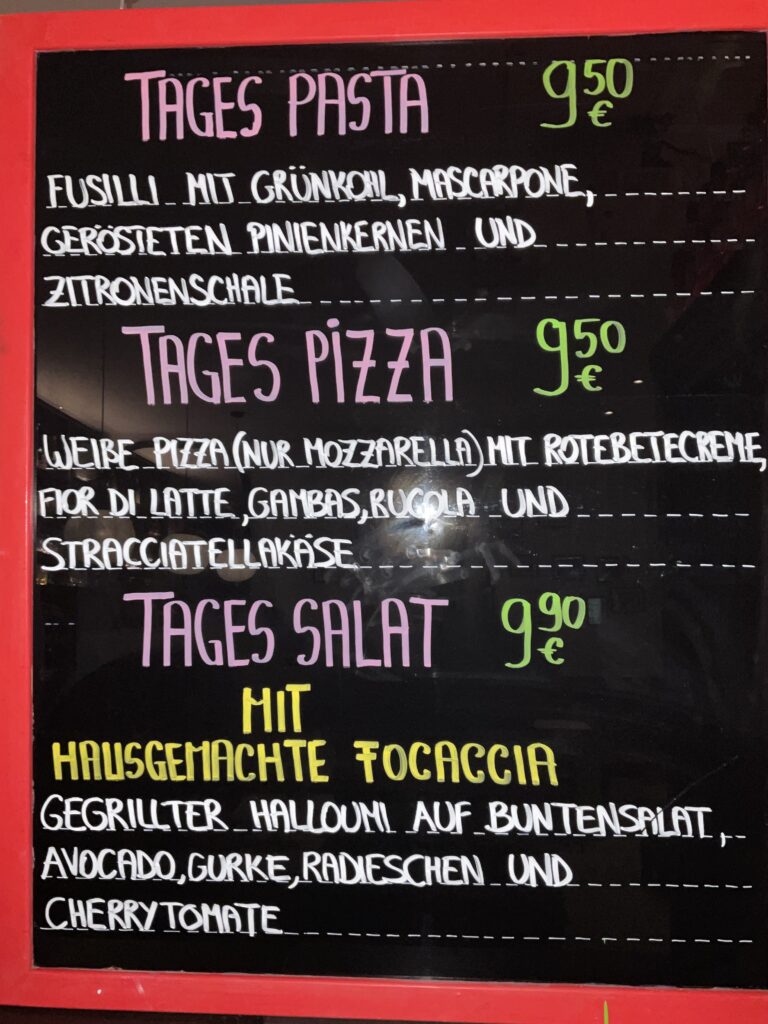 TAGES PASTA 9,50 €
FUSILLI MIT GRÜNKOHL, MASCARPONE,
GERÖSTETEN PINIENKERNEN UND
ZITRONENSCHALE
TAGES PIZZA 9,50 €
WEIßE PIZZA (NUR MOZZARELLA) MIT ROTEBETECREME,
FIOR DI LATTE, GAMBAS, RUCOLA UND
STRACCIATELLAKÄSE
TAGES SALAT 9,90 €
MIT
HAUSGEMACHTE FOCACCIA
GEGRILLTER HALLOUMI AUF BUNTENSALAT,
AVOCADO, GURKE, RADIESCHEN UND
CHERRYTOMATE